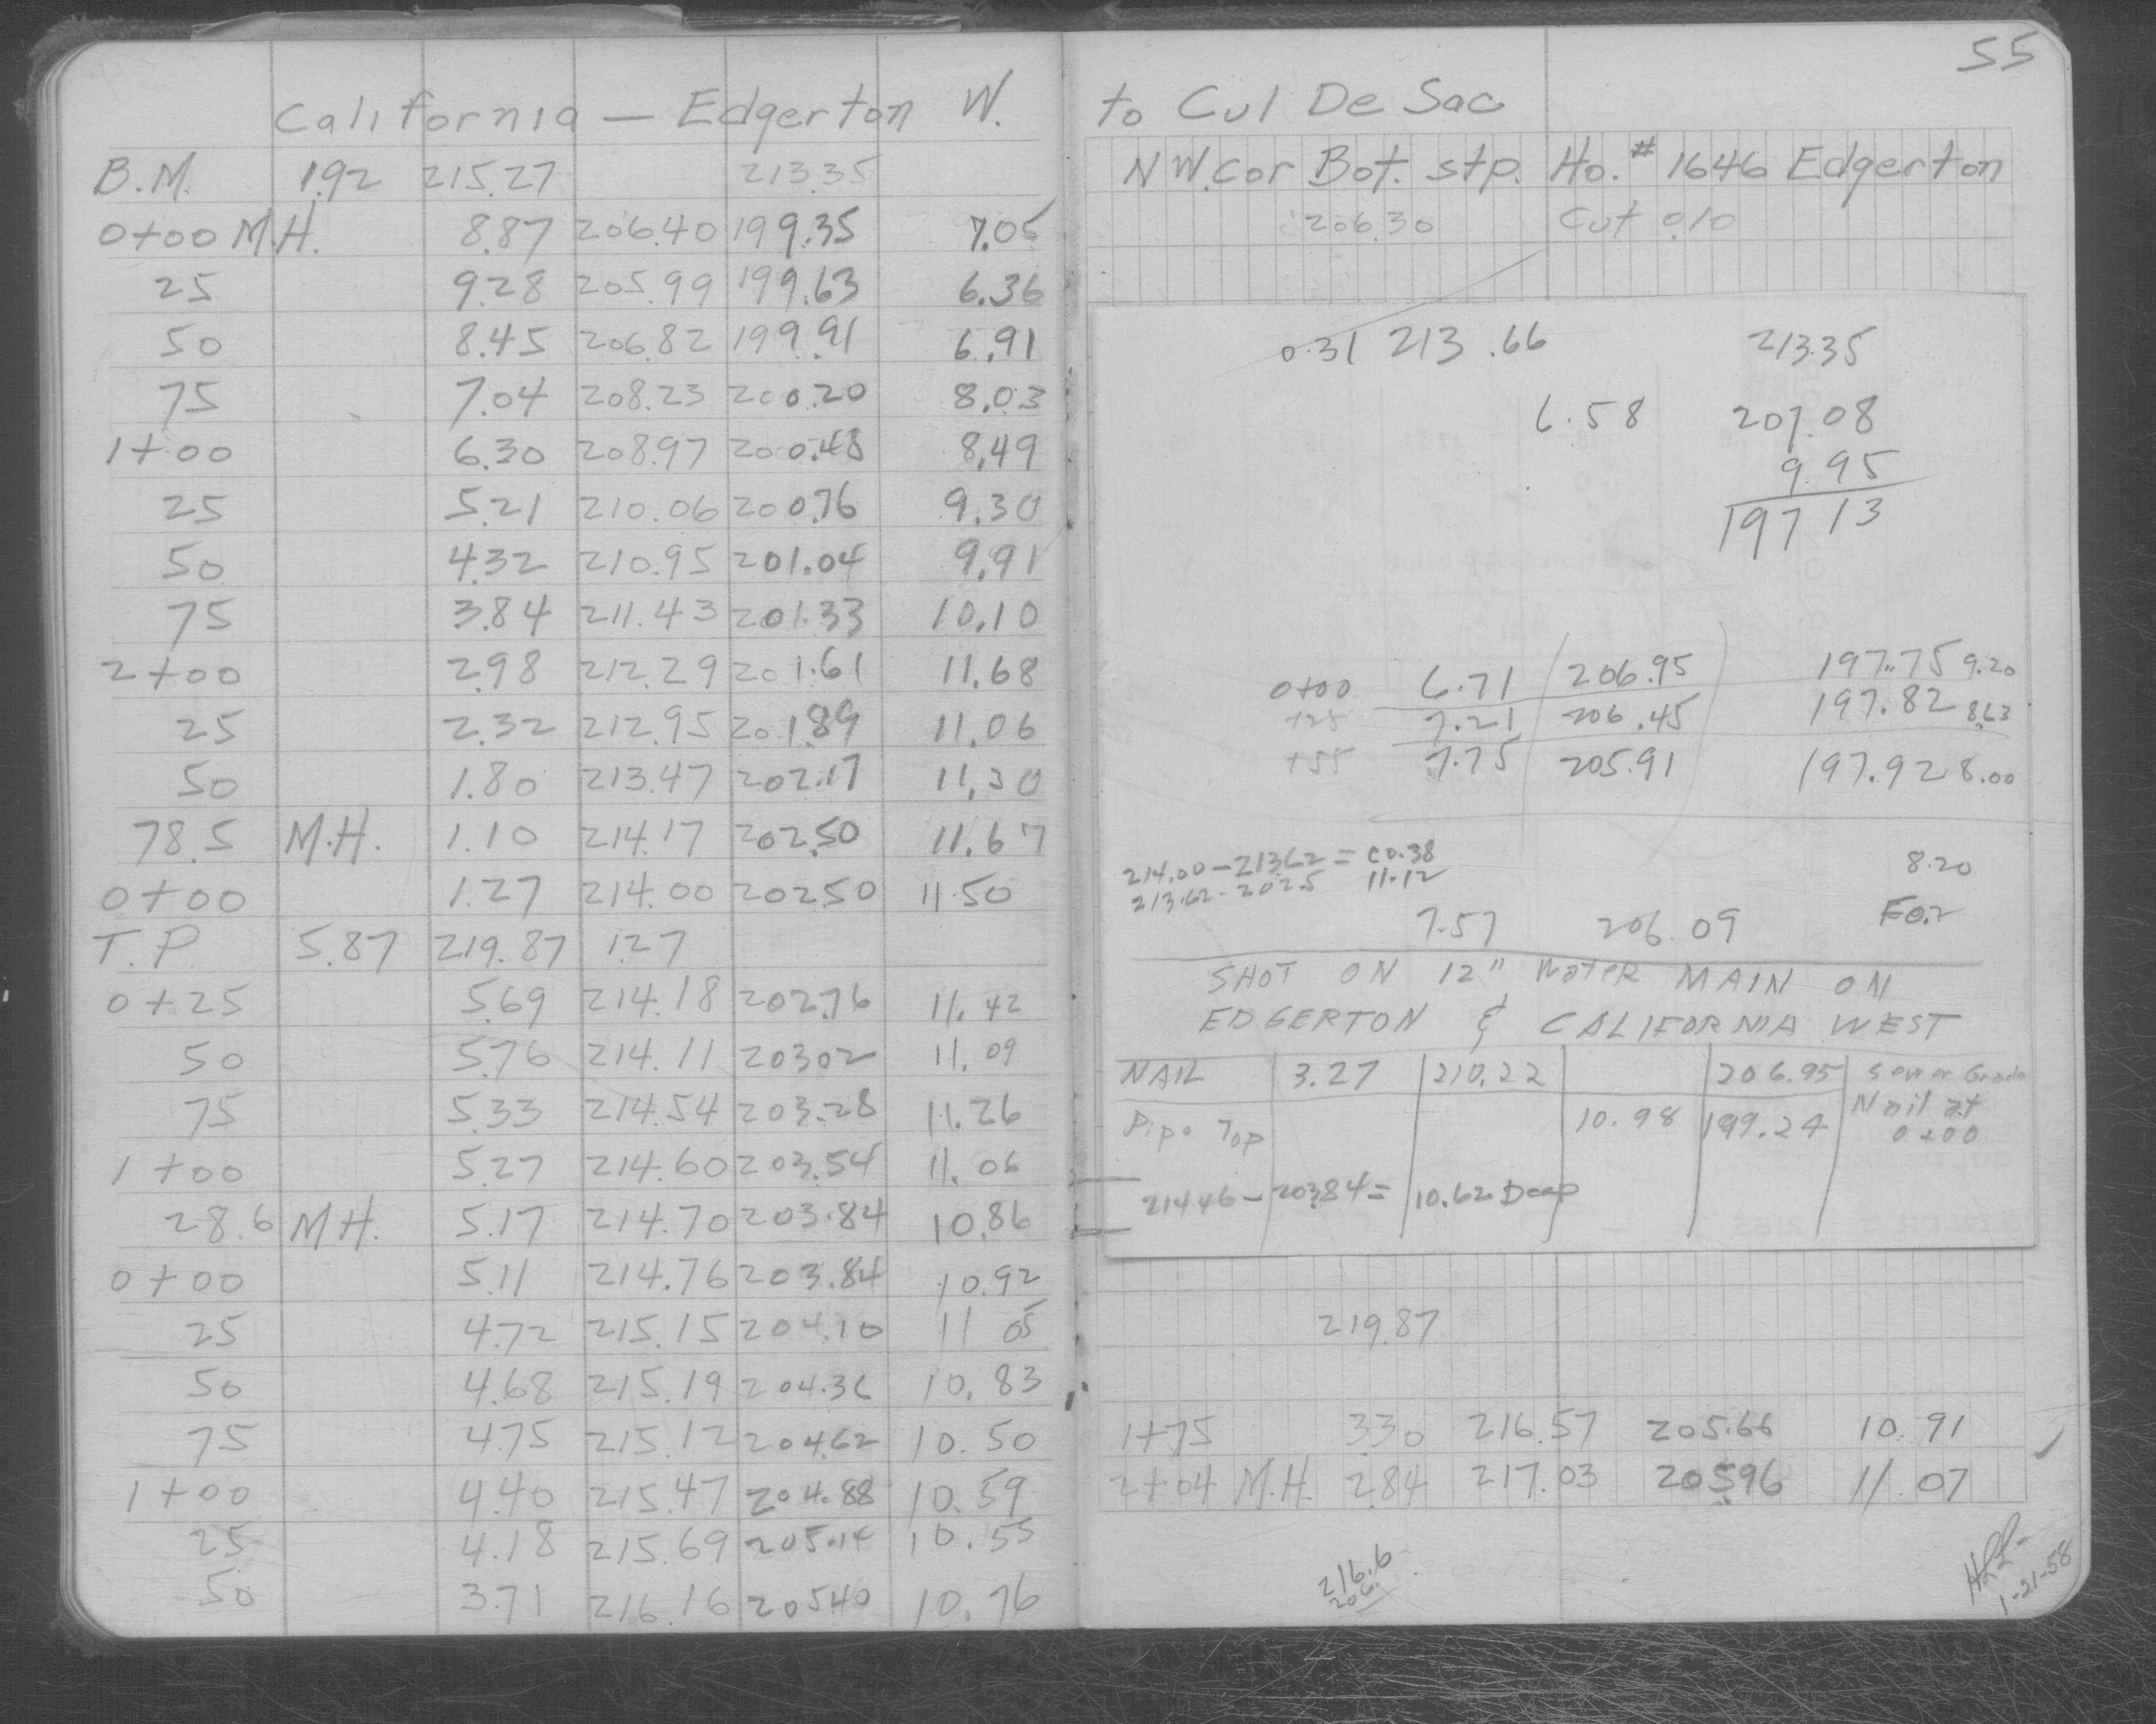 55
California — Edgerton W.
B.M. 1.92 215.27 213.35
0+00 M.H. 8.87 206.40 199.35 7.05
25 9.28 205.99 199.63 6.36
50 8.45 206.82 199.91 6.91
75 7.04 208.23 200.20 8.03
1+00 6.30 208.97 200.48 8.49
25 5.21 210.06 200.76 9.30
50 4.32 210.95 201.04 9.91
75 3.84 211.43 201.33 10.10
2+00 2.98 212.29 201.61 11.68
25 2.32 212.95 201.89 11.06
50 1.80 213.47 202.17 11.30
78.5 M.H. 1.10 214.17 202.50 11.67
0+00 1.27 214.00 202.50 11.50
T.P. 5.87 219.87 1.27
0+25 5.69 214.18 202.76 11.42
50 5.76 214.11 203.02 11.09
75 5.33 214.54 203.28 11.26
1+00 5.27 214.60 203.54 11.06
28.6 M.H. 5.17 214.70 203.84 10.86
0+00 5.11 214.76 203.84 10.92
25 4.72 215.15 204.10 11 05
50 4.68 215.19 204.36 10.83
75 4.75 215.12 204.62 10.50
1+00 4.40 215.47 204.88 10.59
25 4.18 215.69 205.14 10.55
50 3.71 216.16 205.40 10.76
to Cul De Sac
N W. Cor Bot. stp. Ho. # 1646 Edgerton
206.30 Cut 0.10
0.31 213.66 213.35
6.58 207.08
9.95
197 13
0+00 6.71 206.95 197.75 9.20
+25 7.21 206.45 197.82 8.63
+55 7.75 205.91 197.92 8.00
214.00 - 213.62 = C0.38
213.62 - 202.5 11.12
8.20
7.57 206.09 F0.2
SHOT ON 12" WATER MAIN ON
EDGERTON & CALIFORNIA WEST
NAIL 3.27 210.22 206.95 Sewer Grade
Pipe Top 10.98 199.24 Nail at
0+00
214.46 - 203.84 = 10.62 Deep
219.87
1+75 3.30 216.57 205.66 10.91
2+04 M.H. 2.84 217.03 205.96 11.07
216.6
206.
1-21-58